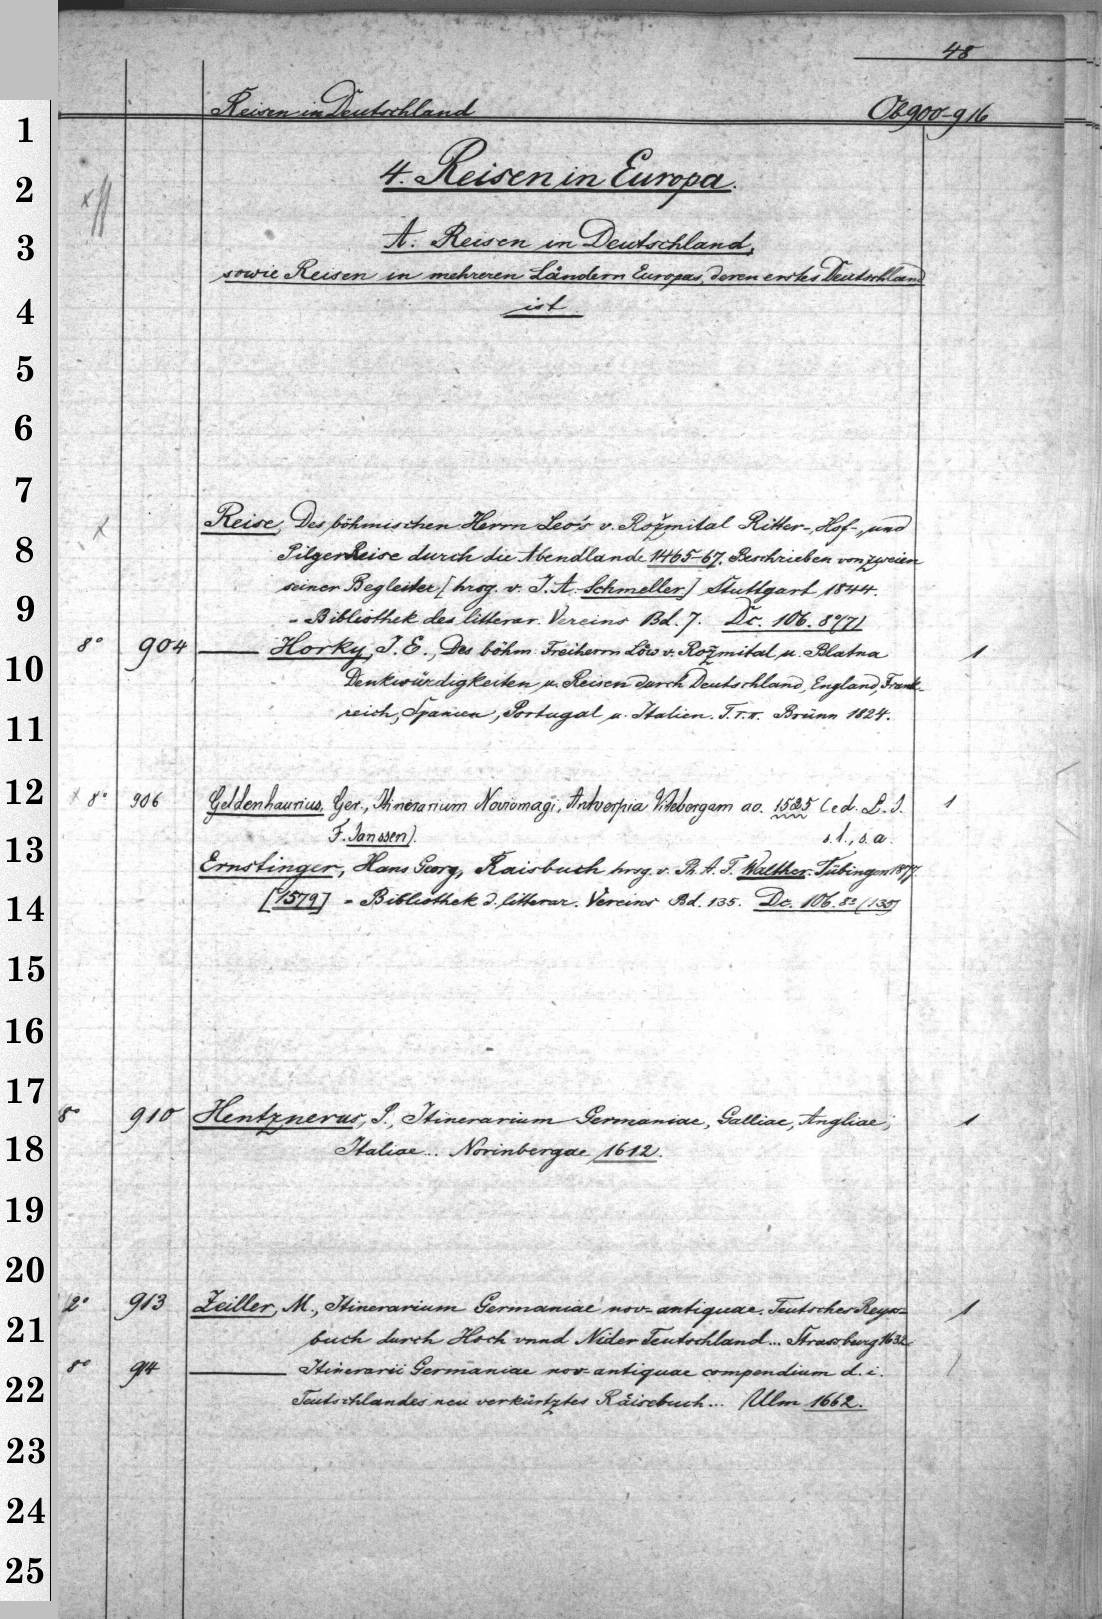 48
Reisen in Deutschland Ob 900-916
4. Reisen in Europa.
A. Reisen in Deutschland,
sowie Reisen in mehreren Ländern Europas, deren erstes Deutschland
ist.
Reise, Des böhmischen Herrn Leo's v. Rožmital Ritter-, Hof-, und
Pilger Reise durch die Abendlande 1465-67. Beschrieben von zweien
seiner Begleiter [hrsg. v. J. A. Schmeller] Stuttgart 1844.
= Bibliothek des litterar. Vereins Bd. 7. Dc. 106. 8°(7)
8° 904 — Horky, J. E., Des böhm. Freiherrn Löw v. Rožmital u. Blatna 1
Denkwürdigkeiten u. Reisen durch Deutschland, England, Frank-
reich, Spanien, Portugal u. Italien. T. I. II. Brünn 1824.
x 8° 906 Geldenhaurius, Ger., Itinerarium Noviomagi, Antverpia Vitebergam ao. 1525 (ed. L. J. 1
F. Janssen). s. l., s. a.
Ernstinger, Hans Georg, Raisbuch hrsg. v. Ph. A. F. Walther. Tübingen 1877.
[1579] = Bibliothek d. litterar. Vereins Bd. 135. Dc. 106. 8° (135)
8° 910 Hentznerus, P., Itinerarium Germaniae, Galliae, Angliae, 1
Italiae... Norinbergae 1612.
2° 913 Zeiller, M., Itinerarium Germaniae nov-antiquae. Teutsches Reyss- 1
buch durch Hoch vnnd Nider Teutschland... Strassburg 1632.
8° 914 — Itinerarii Germaniae nov-antiquae compendium d. i. /
Teutschlandes neu verkürtztes Räisebuch... Ulm 1662.
1
2
3
4
5
6
7
8
9
10
11
12
13
14
15
16
17
18
19
20
21
22
23
24
25